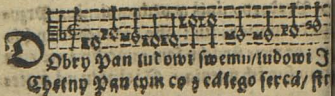 DObry Pan ludowi swemu/ludowi J
Chętny Pan tym co z cáłego sercá/